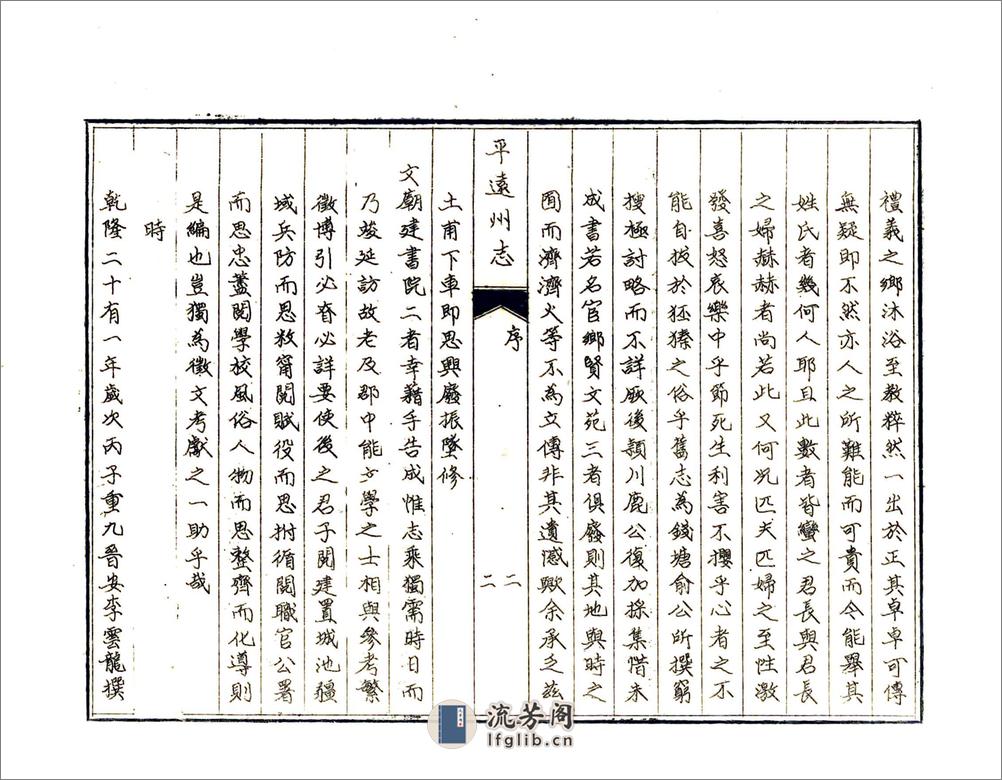 禮義之鄉沐浴至教粹然一出於正其卓卓可傳
無疑即不然亦人之所難能而可貴而今能舉其
姓氏者幾何人耶且此數者皆蠻之君長與君長
之婦赫赫者尚若此又何況匹夫匹婦之至性激
發喜怒哀樂中乎節死生利害不攖乎心者之不
能自拔於狉獉之俗乎舊志為錢塘俞公所撰窮
搜極討略而不詳厥後潁川鹿公復加採集惜未
成書若名宦鄉賢文苑三者俱廢則其地與時之
囿而濟濟火等不為立傳非其遺憾歟余承乏茲
平遠州志
序
二
二
土甫下車即思興廢振墜修
文廟建書院二者幸藉手告成惟志乘獨需時日而
乃踆延訪故老及郡中能文學之士相與參考繁
徵博引必脊必詳要使後之君子閱建置城池疆
域兵防而思敉甯閱賦役而思拊循閱職官公署
而思忠藎閱學校風俗人物而思整齊而化導則
是編也豈獨為徵文考獻之一助乎哉
時
乾隆二十有一年歲次丙子重九晉安李雲龍撰
流芳阁
lfglib.cn